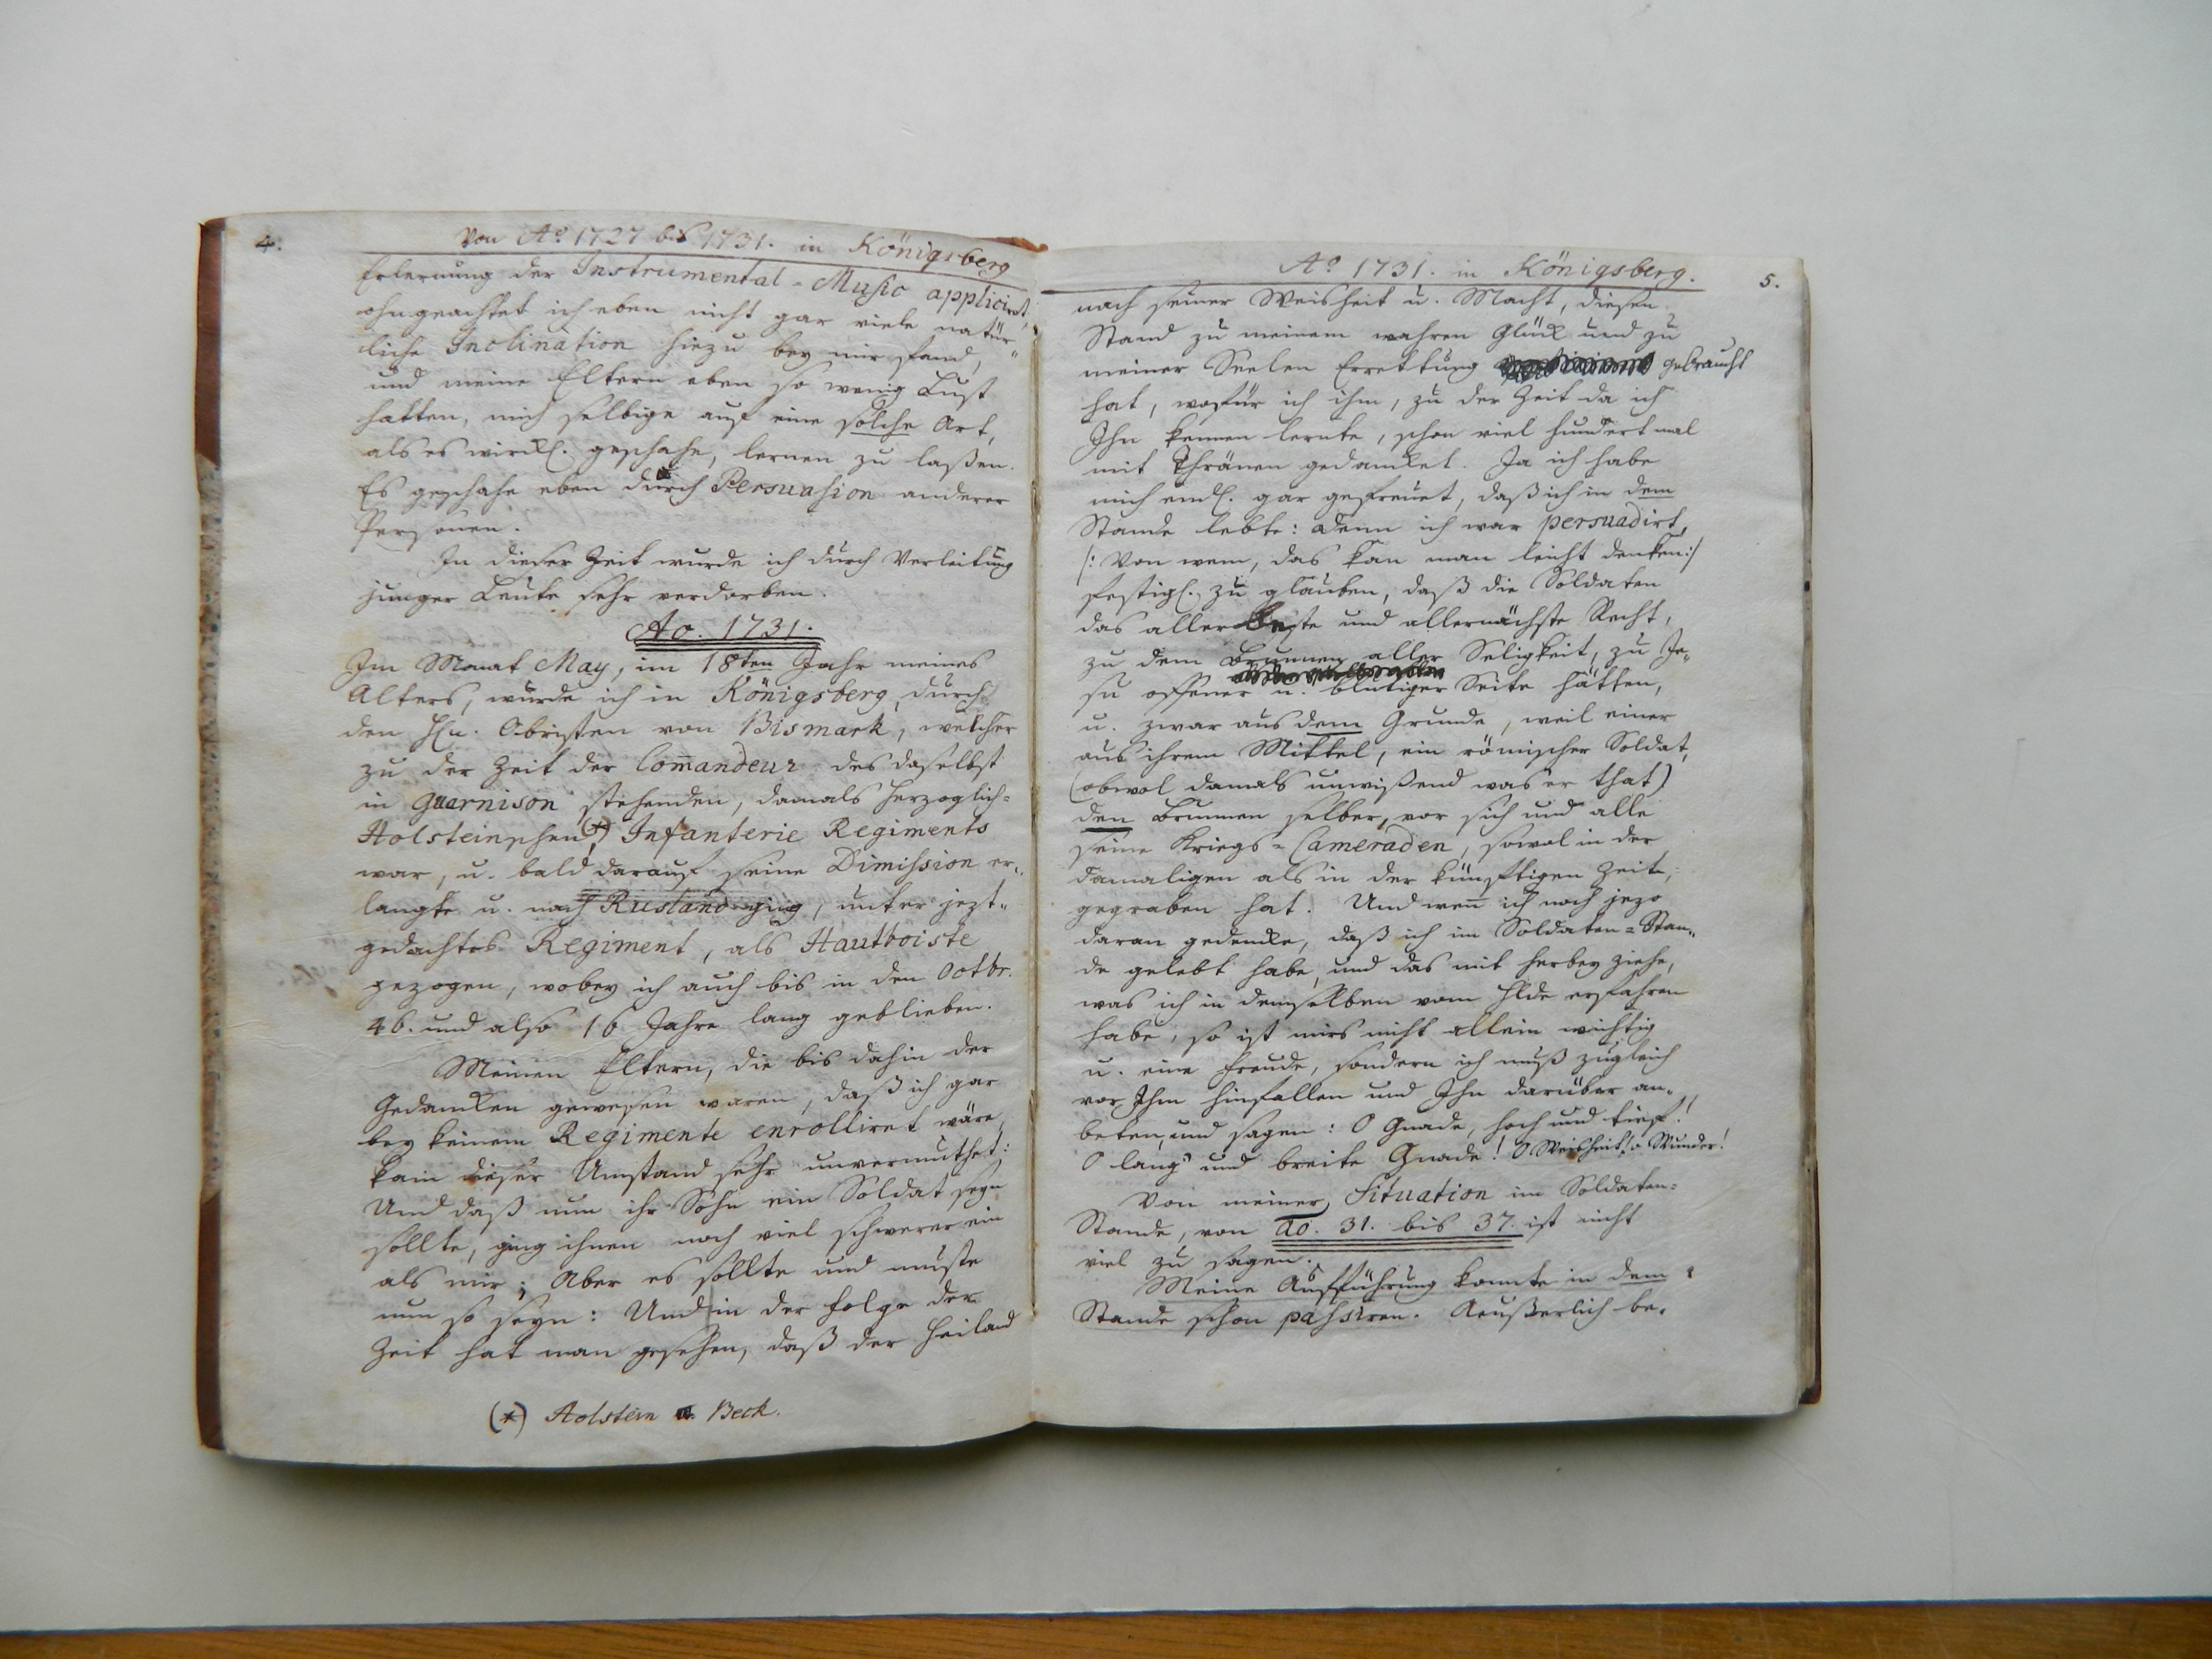 4.
Von Aº 1727 bis 1731. in Königsberg
Erlernung der Instrumental-Music applicirt,
ohngeachtet ich eben nicht gar viele natür„
liche Inclination hiezu bey mir fand,
und meine Eltern eben so wenig Lust
hatten, mich selbige auf eine solche Art,
als es wirkl. geschahe, lernen zu laßen.
Es geschahe eben durch Persuasion anderer
Personen.
In dieser Zeit wurde ich durch Verleitung
junger Leute sehr verdorben.
Ao. 1731.
Im Monat May, im 18ten Jahr meines
Alters, wurde ich in Königsberg, durch
den Hn. Obristen von Bismark, welcher
zu der Zeit der Com̄andeur des daselbst
in Guarnison stehenden, damals Herzoglich-
Holsteinschen (*) Infanterie Regiments
war, u. bald darauf seine Dimission er„
langte u. nach Rusland ging, unter jezt-
gedachtes Regiment, als Hautboiste
gezogen, wobey ich auch bis in den Octbr.
46. und also 16 Jahre lang geblieben.
Meinen Eltern, die bis dahin der
Gedanken gewesen waren, daß ich gar
bey keinem Regimente enrolliret wäre,
kam dieser Umstand sehr unvermuthet;
Und daß nun ihr Sohn ein Soldat seyn
sollte, ging ihnen noch viel schwerer ein
als mir; Aber es sollte und muste
nun so seyn: Und in der Folge der
Zeit hat man gesehen, daß der Heiland
(*) Holstein Beck.
Aº 1731. in Königsberg.
5.
nach seiner Weisheit u. Macht, diesen
Stand zu meinem wahren Glük und zu
meiner Seelen Errettung gebraucht
hat, wofür ich ihm, zu der Zeit da ich
Ihn kennen lernte, schon viel hundert mal
mit Thränen gedanket. Ja ich habe
mich endl. gar gefreuet, daß ich in dem
Stande lebte: Denn ich war persuadirt,
/: Von wem, das kan man leicht denken :/
festigl. zu glauben, daß die Soldaten
das allerbeste und allernächste Recht,
zu dem Brunnen aller Seligkeit, zu Je„
su offener u. blutiger Seite hätten,
u. zwar aus dem Grunde, weil einer
aus ihrem Mittel, ein römischer Soldat,
(obwol damals unwißend was er that)
den Brunnen selber, vor sich und alle
seine Kriegs-Cameraden, sowol in der
damaligen als in der künftigen Zeit,
gegraben hat. Und wen̄ ich noch jezo
daran gedenke, daß ich im Soldaten-Stan„
de gelebt habe, und das mit herbey ziehe,
was ich in demselben vom Hlde erfahren
habe, so ist mirs nicht allein wichtig
u. eine Freude, sondern ich muß zugleich
vor Ihm hinfallen und Ihn darüber an„
beten, und sagen: O Gnade, hoch und tief!
O lang' und breite Gnade! O Weisheit! o Wunder!
Von meiner Situation im Soldaten-
Stande, von ao. 31. bis 37. ist nicht
viel zu sagen.
Meine Aufführung konnte in dem
Stande schon passiren. Aeußerlich be„